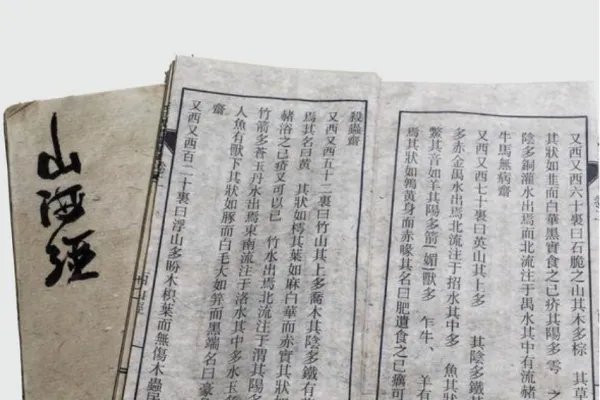 又西又西六十裏曰石脆之山其木多棕 其草
其狀如韭而白華黑實食之已疥其陽多 雩 之
陰多銅灌水出焉而北流注于禺水其中有流赭
牛馬無病齋
又西又西七十裏曰英山其上多 其陰多鐵其
多赤金禺水出焉北流注于招水其中多 魚其狀
鱉其音如羊其陽多箭（媚）獸多 乍牛、 羊有
焉其狀如鶉黃身而赤喙其名曰肥遺食之已癘可
殺蟲齋
又西又西五十二裏曰竹山其上多喬木其陰多鐵有
焉其名曰黃 其狀如樗其葉如麻白華而赤實其狀如
赭浴之已疥又可以已 竹水出焉北流注于渭其陽多
竹箭多蒼玉丹水出焉東南流注于洛水其中多水玉
人魚有獸下其狀如豚而白毛大如笄而黑端名曰豪
齋
又西又西百二十裏曰浮山多盼木枳葉而無傷木蟲居
山海經